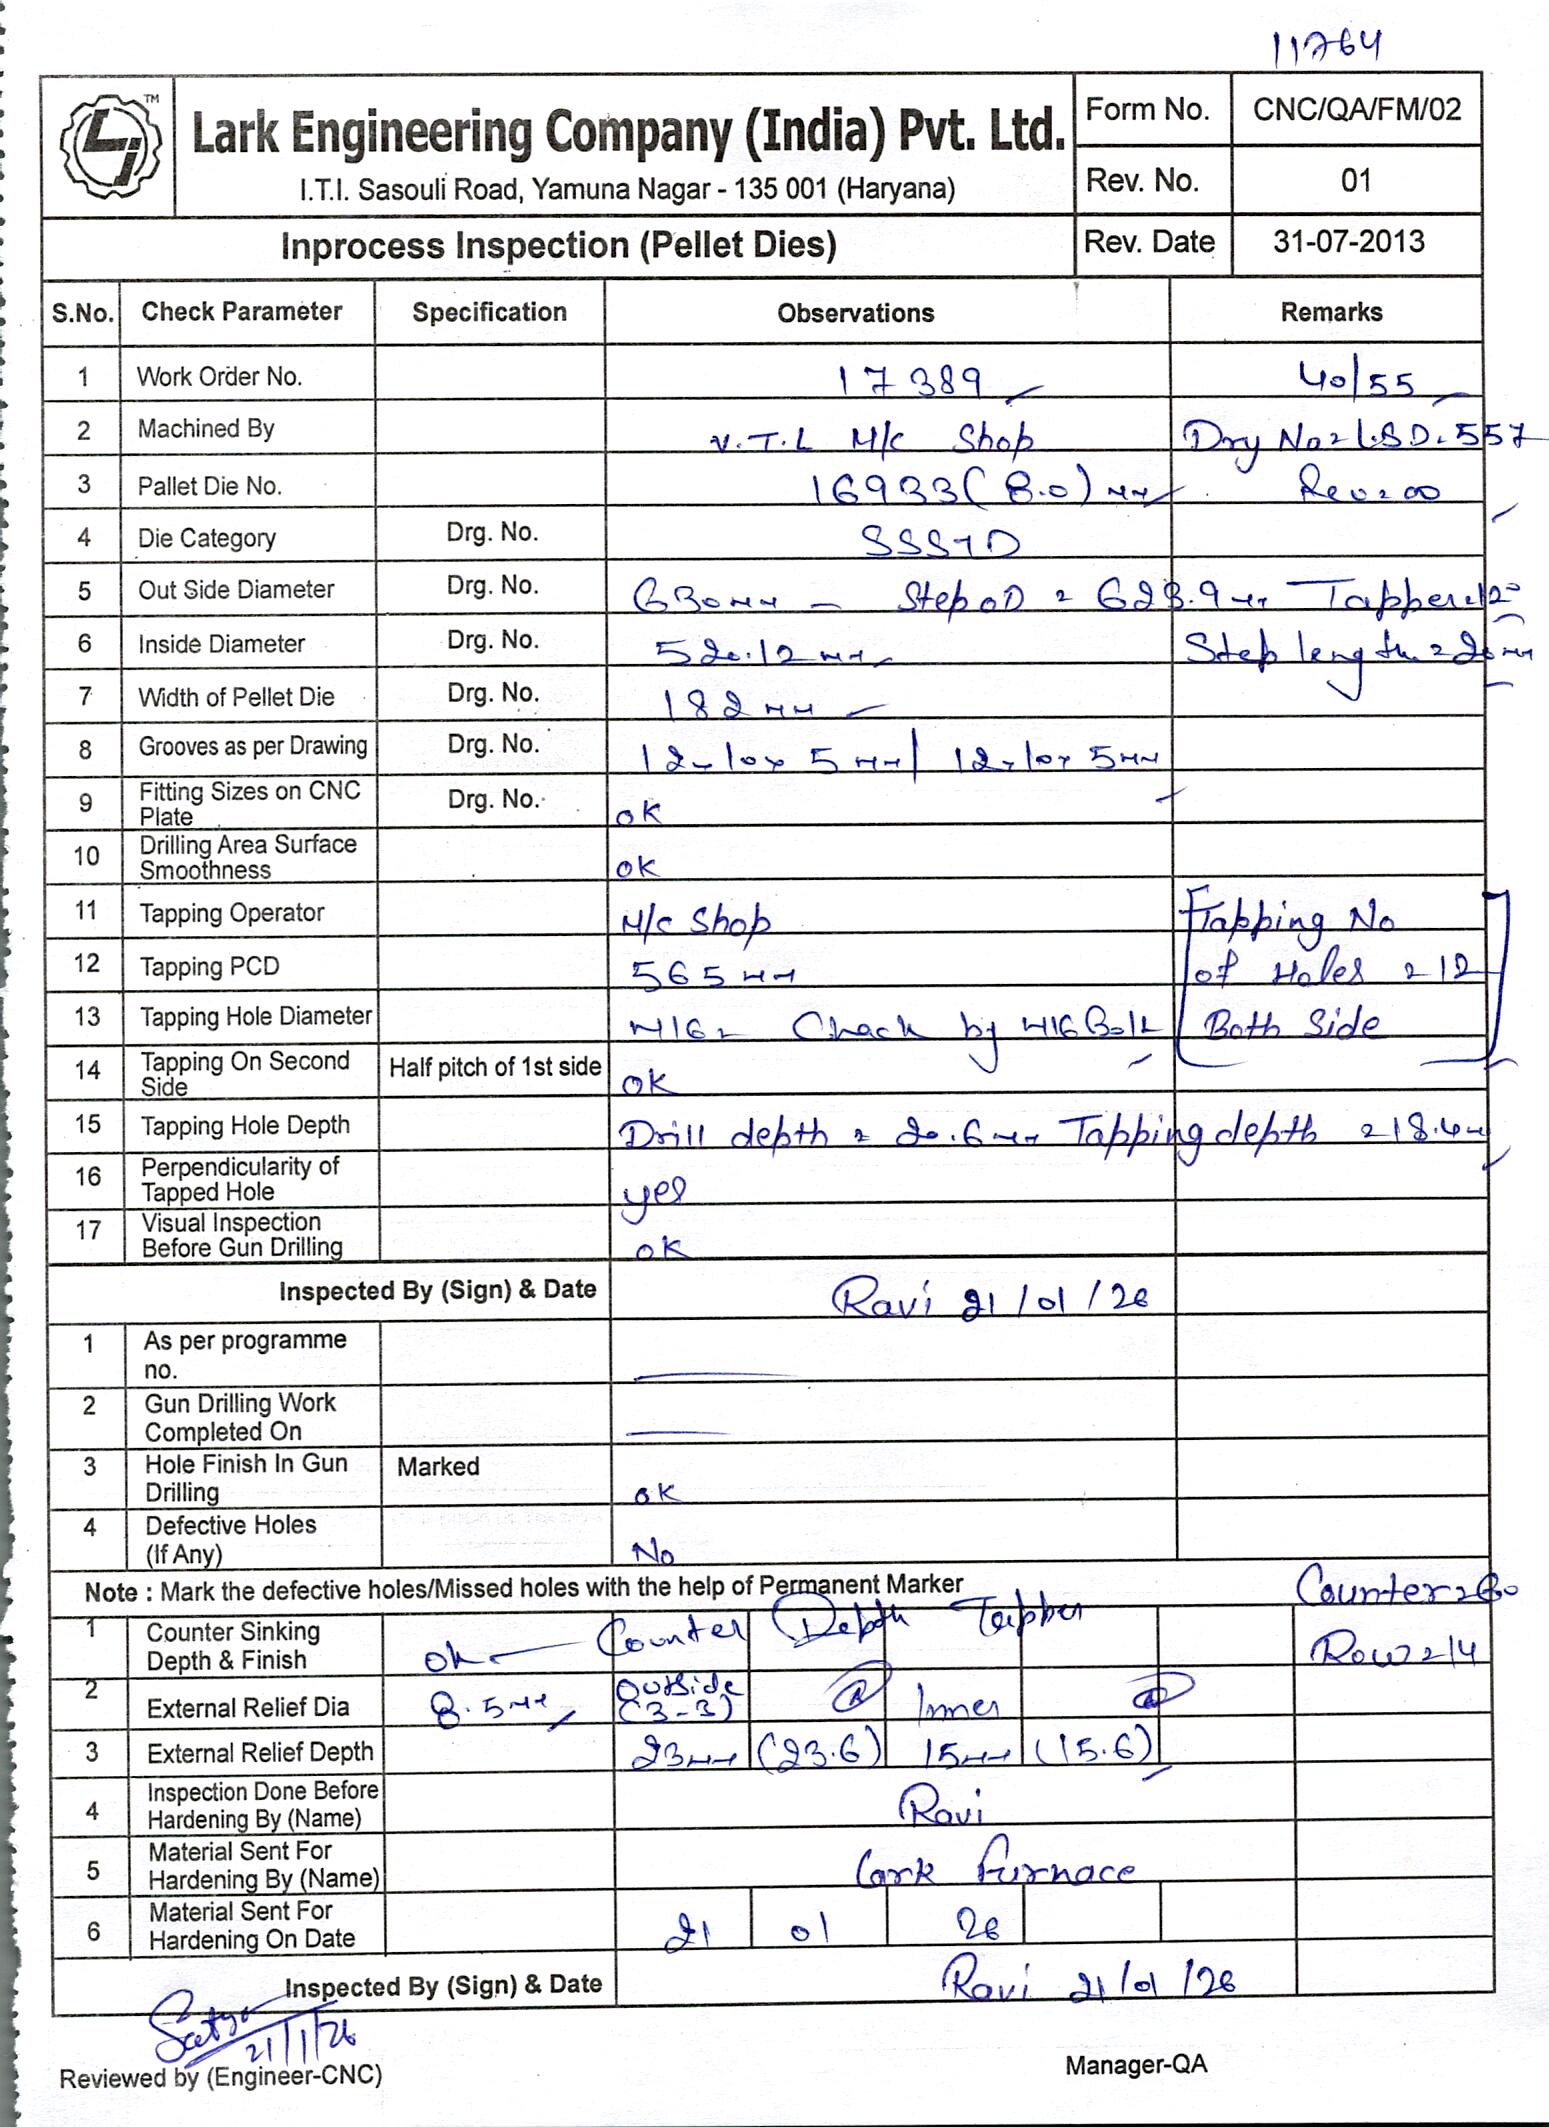 11764
TM
Lark Engineering Company (India) Pvt. Ltd.
I.T.I. Sasouli Road, Yamuna Nagar - 135 001 (Haryana)
Form No. CNC/QA/FM/02
Rev. No. 01
Inprocess Inspection (Pellet Dies) Rev. Date 31-07-2013
S.No. Check Parameter Specification Observations Remarks
1 Work Order No. 17389 40/55
2 Machined By V.T.L M/c Shop Drg No = LSD-557
3 Pallet Die No. 16933 (8.0) mm Rev = 00
4 Die Category Drg. No. SSSTD
5 Out Side Diameter Drg. No. 630mm - Step OD = 623.9mm Tapper = 12°
6 Inside Diameter Drg. No. 520.12mm Step length = 20mm
7 Width of Pellet Die Drg. No. 182mm
8 Grooves as per Drawing Drg. No. 12-10x5mm / 12-10x5mm
9 Fitting Sizes on CNC Plate Drg. No. ok
10 Drilling Area Surface Smoothness ok
11 Tapping Operator M/c Shop Tapping No
12 Tapping PCD 565mm of Holes = 12
13 Tapping Hole Diameter M16 - Chack by M16 Bolt Both Side
14 Tapping On Second Side Half pitch of 1st side ok
15 Tapping Hole Depth Drill depth = 20.6mm Tapping depth = 18.4m
16 Perpendicularity of Tapped Hole yes
17 Visual Inspection Before Gun Drilling ok
Inspected By (Sign) & Date Ravi 21/01/26
1 As per programme no.
2 Gun Drilling Work Completed On
3 Hole Finish In Gun Drilling Marked ok
4 Defective Holes (If Any) No
Note : Mark the defective holes/Missed holes with the help of Permanent Marker Counter = 60
1 Counter Sinking Depth & Finish ok - Counter Depth Tapper Row = 14
2 External Relief Dia 8.5mm Outside (3-3) Inner
3 External Relief Depth 23mm (23.6) 15mm (15.6)
4 Inspection Done Before Hardening By (Name) Ravi
5 Material Sent For Hardening By (Name) Lark Furnace
6 Material Sent For Hardening On Date 21 01 26
Inspected By (Sign) & Date Ravi 21/01/26
Satya
21/1/26
Reviewed by (Engineer-CNC) Manager-QA